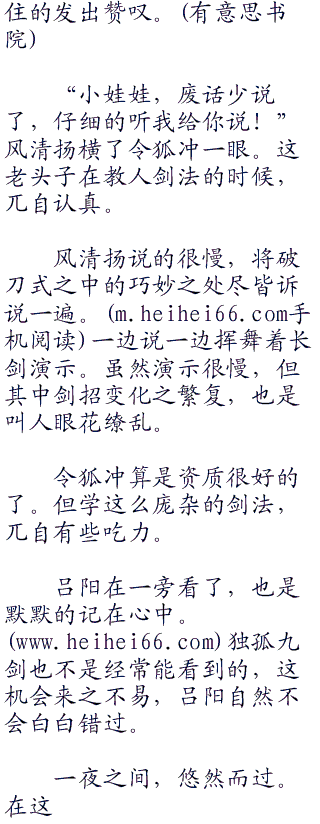 住的发出赞叹。(有意思书
院)
“小娃娃，废话少说
了，仔细的听我给你说！”
风清扬横了令狐冲一眼。这
老头子在教人剑法的时候，
兀自认真。
风清扬说的很慢，将破
刀式之中的巧妙之处尽皆诉
说一遍。(m.heihei66.com手
机阅读)一边说一边挥舞着长
剑演示。虽然演示很慢，但
其中剑招变化之繁复，也是
叫人眼花缭乱。
令狐冲算是资质很好的
了。但学这么庞杂的剑法，
兀自有些吃力。
吕阳在一旁看了，也是
默默的记在心中。
(www.heihei66.com)独孤九
剑也不是经常能看到的，这
机会来之不易，吕阳自然不
会白白错过。
一夜之间，悠然而过。
在这